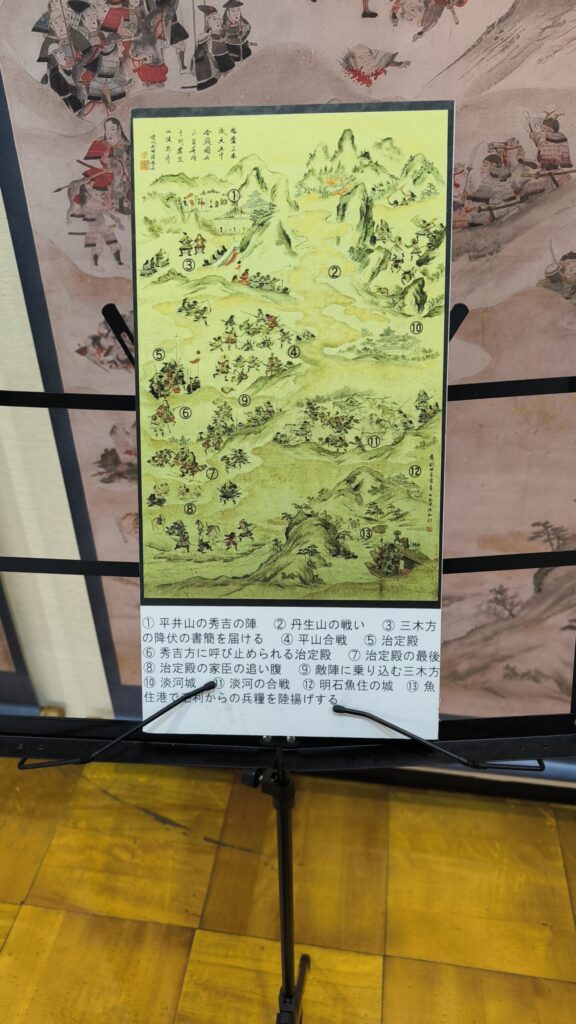 ①
②
③
④
⑤
⑥
⑦
⑧
⑨
⑩
⑪
⑫
⑬
① 平井山の秀吉の陣　② 丹生山の戦い　③ 三木方
の降伏の書簡を届ける　④ 平山合戦　⑤ 治定殿
⑥ 秀吉方に呼び止められる治定殿　⑦ 治定殿の最後
⑧ 治定殿の家臣の追い腹　⑨ 敵陣に乗り込む三木方
⑩ 淡河城　⑪ 淡河の合戦　⑫ 明石魚住の城　⑬ 魚
住港で毛利からの兵糧を陸揚げする